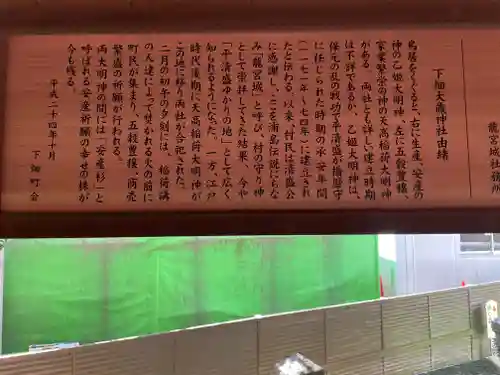 下畑大歳神社由緒
鳥居をくぐると、右に生産、安産の
神の乙姫大明神、左に五穀豊穣、
家業繁栄の神の天高稲荷大明神
がある。両社とも詳しい建立時期
は不詳であるが、乙姫大明神は、
保元の乱の戦功で平清盛が播磨守
に任じられた時期の永安年間
(一一七一~七四年)に建立され
たと伝わる。以来、村民は清盛公
に感謝し、ここを浦島伝説にちな
み「龍宮城」と呼び、村の守り神
として崇拝してきた結果、今や
「平清盛ゆかりの地」として広く
知られるようになった。一方、江戸
時代後期に天高稲荷大明神が
この地に移り両社が合祀された。
二月の初午の夕刻には、稲荷講
の人達によって焚かれる火の前に
町民が集まり、五穀豊穣、商売
繁盛の祈願が行われる。
両大明神の間には「安産杉」と
呼ばれる安産祈願の幸せの株が
今も残る。
平成二十四年十月
下畑町会
龍宮城
務所